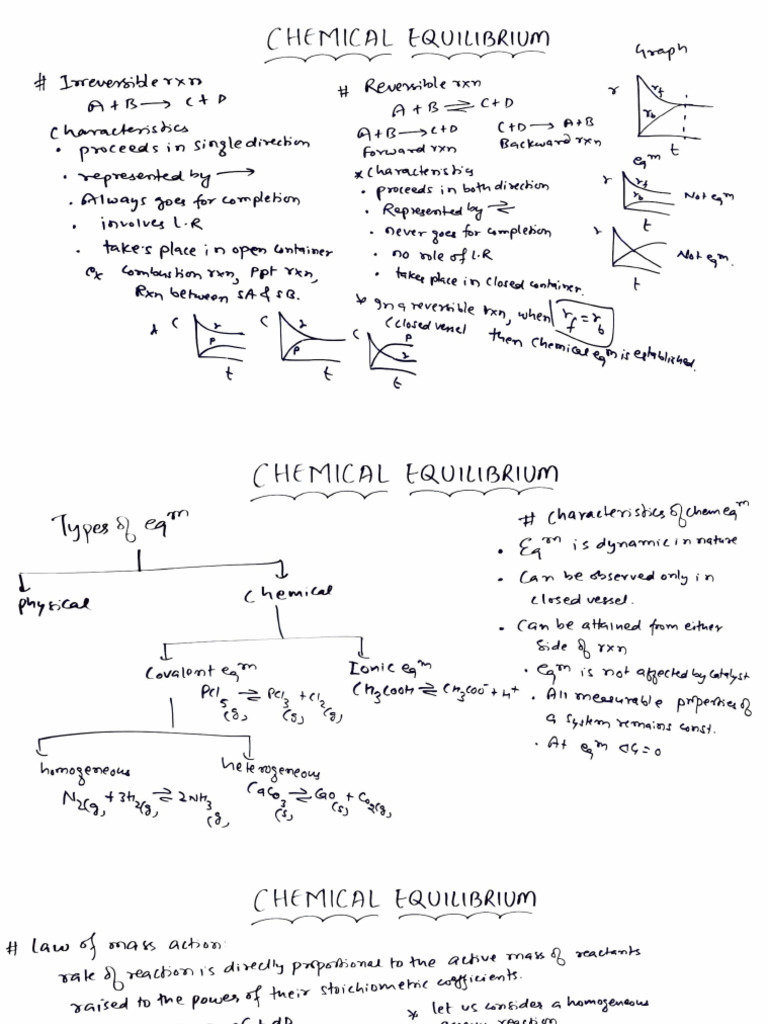 CHEMICAL EQUILIBRIUM
# Irreversible rxn
A + B → C + D
Characteristics
• proceeds in single direction
• represented by →
• Always goes for completion
• involves L.R
• takes place in open container
ex combustion rxn, ppt rxn,
Rxn between SA & SB.
# Reversible rxn
A + B ⇌ C + D
A+B → C+D C+D → A+B
Forward rxn Backward rxn
* Characteristics
• proceeds in both direction
• Represented by ⇌
• never goes for completion
• no role of L.R
• takes place in closed container.
* In a reversible rxn, when rf = rb
(closed vessel then chemical eqm is established.
Graph
r rf rb t
eqm
r rf rb t Not eqm
r t Not eqm.
C r P t
C P t
C P r t
CHEMICAL EQUILIBRIUM
Types of eqm
physical
Chemical
Covalent eqm
PCl5(g) ⇌ PCl3(g) + Cl2(g)
Ionic eqm
CH3COOH ⇌ CH3COO⁻ + H⁺
homogeneous
N2(g) + 3H2(g) ⇌ 2NH3(g)
heterogeneous
CaCO3(s) ⇌ CaO(s) + CO2(g)
# Characteristics of chem eqm
• Eqm is dynamic in nature
• Can be observed only in
closed vessel.
• Can be attained from either
side of rxn
• eqm is not affected by catalyst
• All measurable properties of
a system remains const.
• At eqm ΔG=0
CHEMICAL EQUILIBRIUM
# Law of mass action
rate of reaction is directly proportional to the active mass of reactants
raised to the power of their stoichiometric coefficients.
* let us consider a homogeneous